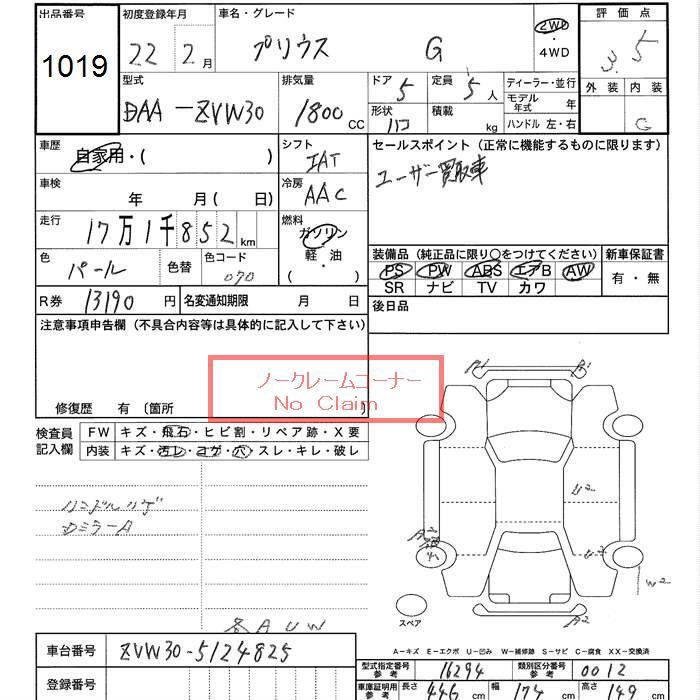 出品番号 初度登録年月 車名・グレード 評価点
1019 22 2月 プリウス G 2WD・4WD 3.5
型式 排気量 ドア 5 定員 5人 ディーラー・並行 外装 内装
DAA-ZVW30 1800cc 形状 ハコ 積載 kg モデル年式 年 G
ハンドル 左・右
車歴 シフト セールスポイント（正常に機能するものに限ります）
自家用・( ) IAT ユーザー買取車
車検 冷房
年 月( 日) AAC
走行 燃料
17万1千852km ガソリン・軽・油
( )
色 パール 色替 色コード 070
装備品（純正品に限り○をつけてください） 新車保証書
PS PW ABS エアB AW 有・無
SR ナビ TV カワ
R券 13190円 名変通知期限 月 日 後日品
注意事項申告欄（不具合内容等は具体的に記入して下さい）
ノークレームコーナー
No Claim
修復歴 有〔箇所 〕
検査員記入欄 FW キズ・飛石・ヒビ割・リペア跡・X要
内装 キズ・汚レ・コゲ・穴・スレ・キレ・破レ
ハンドルハゲ
DミラーA
各AUW
A1 A1
U2
A2
U2
W2
A2
スペア
A-キズ E-エクボ U-凹み W-補修跡 S-サビ C-腐食 XX-交換済
車台番号 ZVW30-5124825
型式指定番号 参考 16294 類別区分番号 参考 0012
登録番号 車庫証明用 参考 長さ 446cm 幅 174cm 高さ 149cm